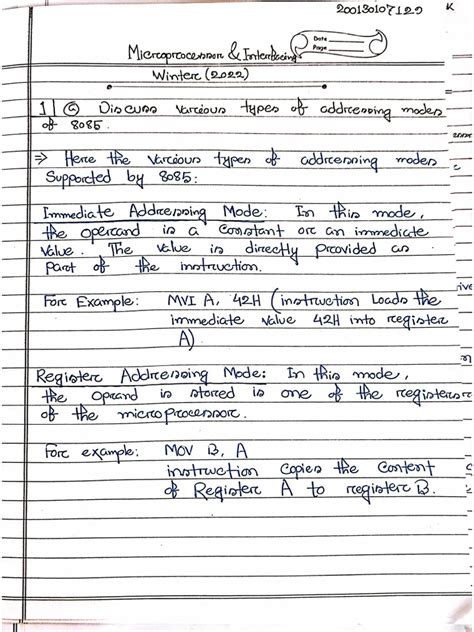 200130107129 K
Date
Page
Microprocessor & Interfacing
Winter (2022)
1 (a) Discuss various types of addressing modes
of 8085.
⇒ Here the various types of addressing modes
Supported by 8085:
Immediate Addressing Mode: In this mode,
the operand is a constant or an immediate
value. The value is directly provided as
part of the instruction.
For Example: MVI A, 42H (instruction Loads the
immediate value 42H into register
A)
Register Addressing Mode: In this mode,
the oprand is stored is one of the registersr
of the microprocessor.
For example: MOV B, A
instruction copies the content
of Register A to register B.